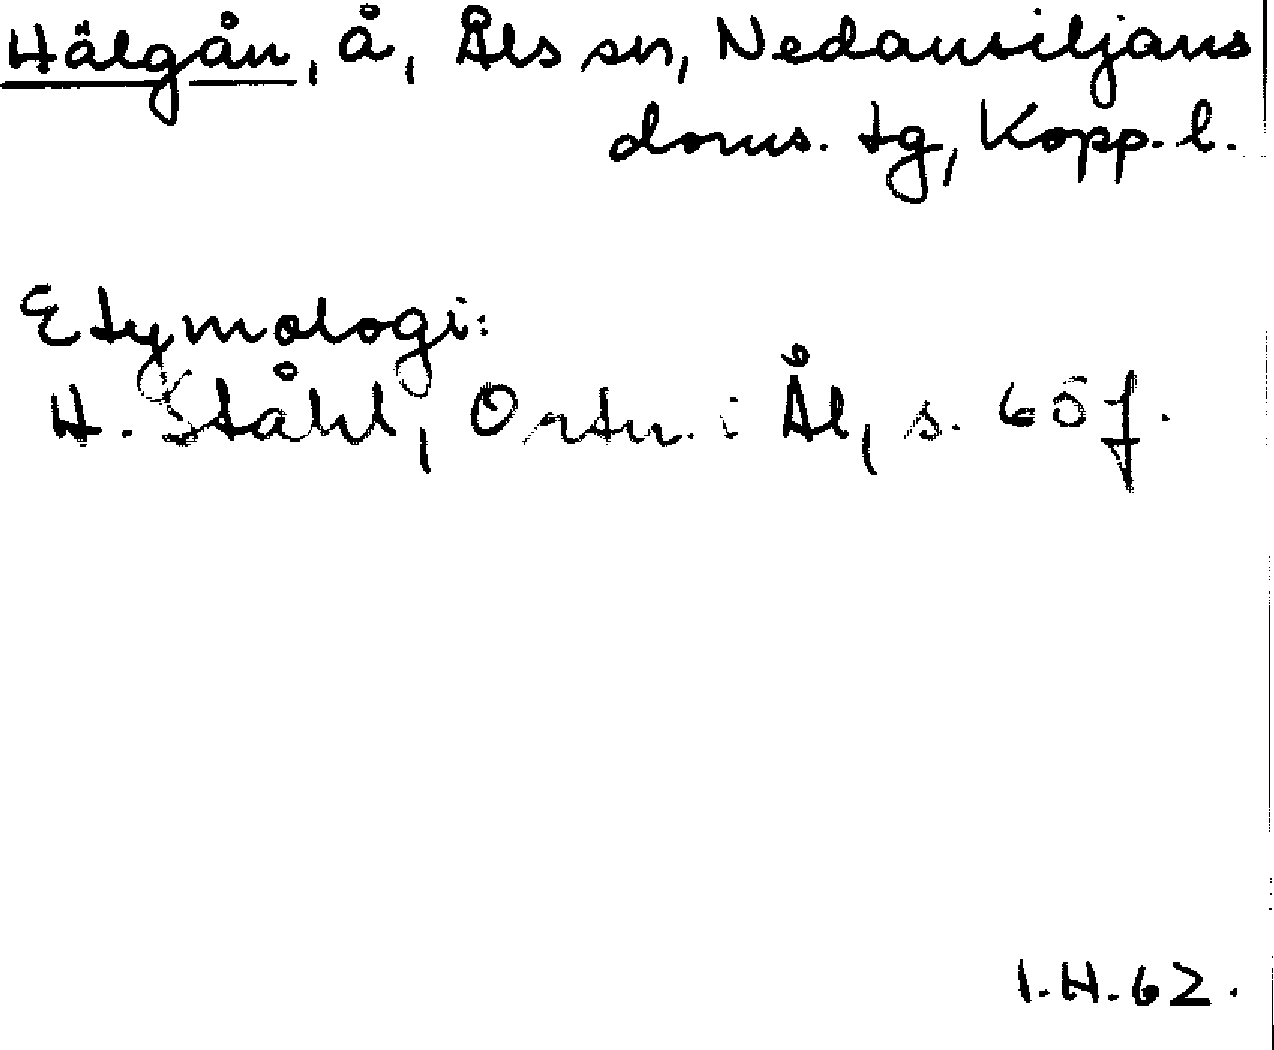 Hälgån, å, Åls sn, Nedansiljans
doms. tg, Kopp. l.
Etymologi:
H. Ståhl, Ortn. i Ål, s. 60 f.
I.H.62.